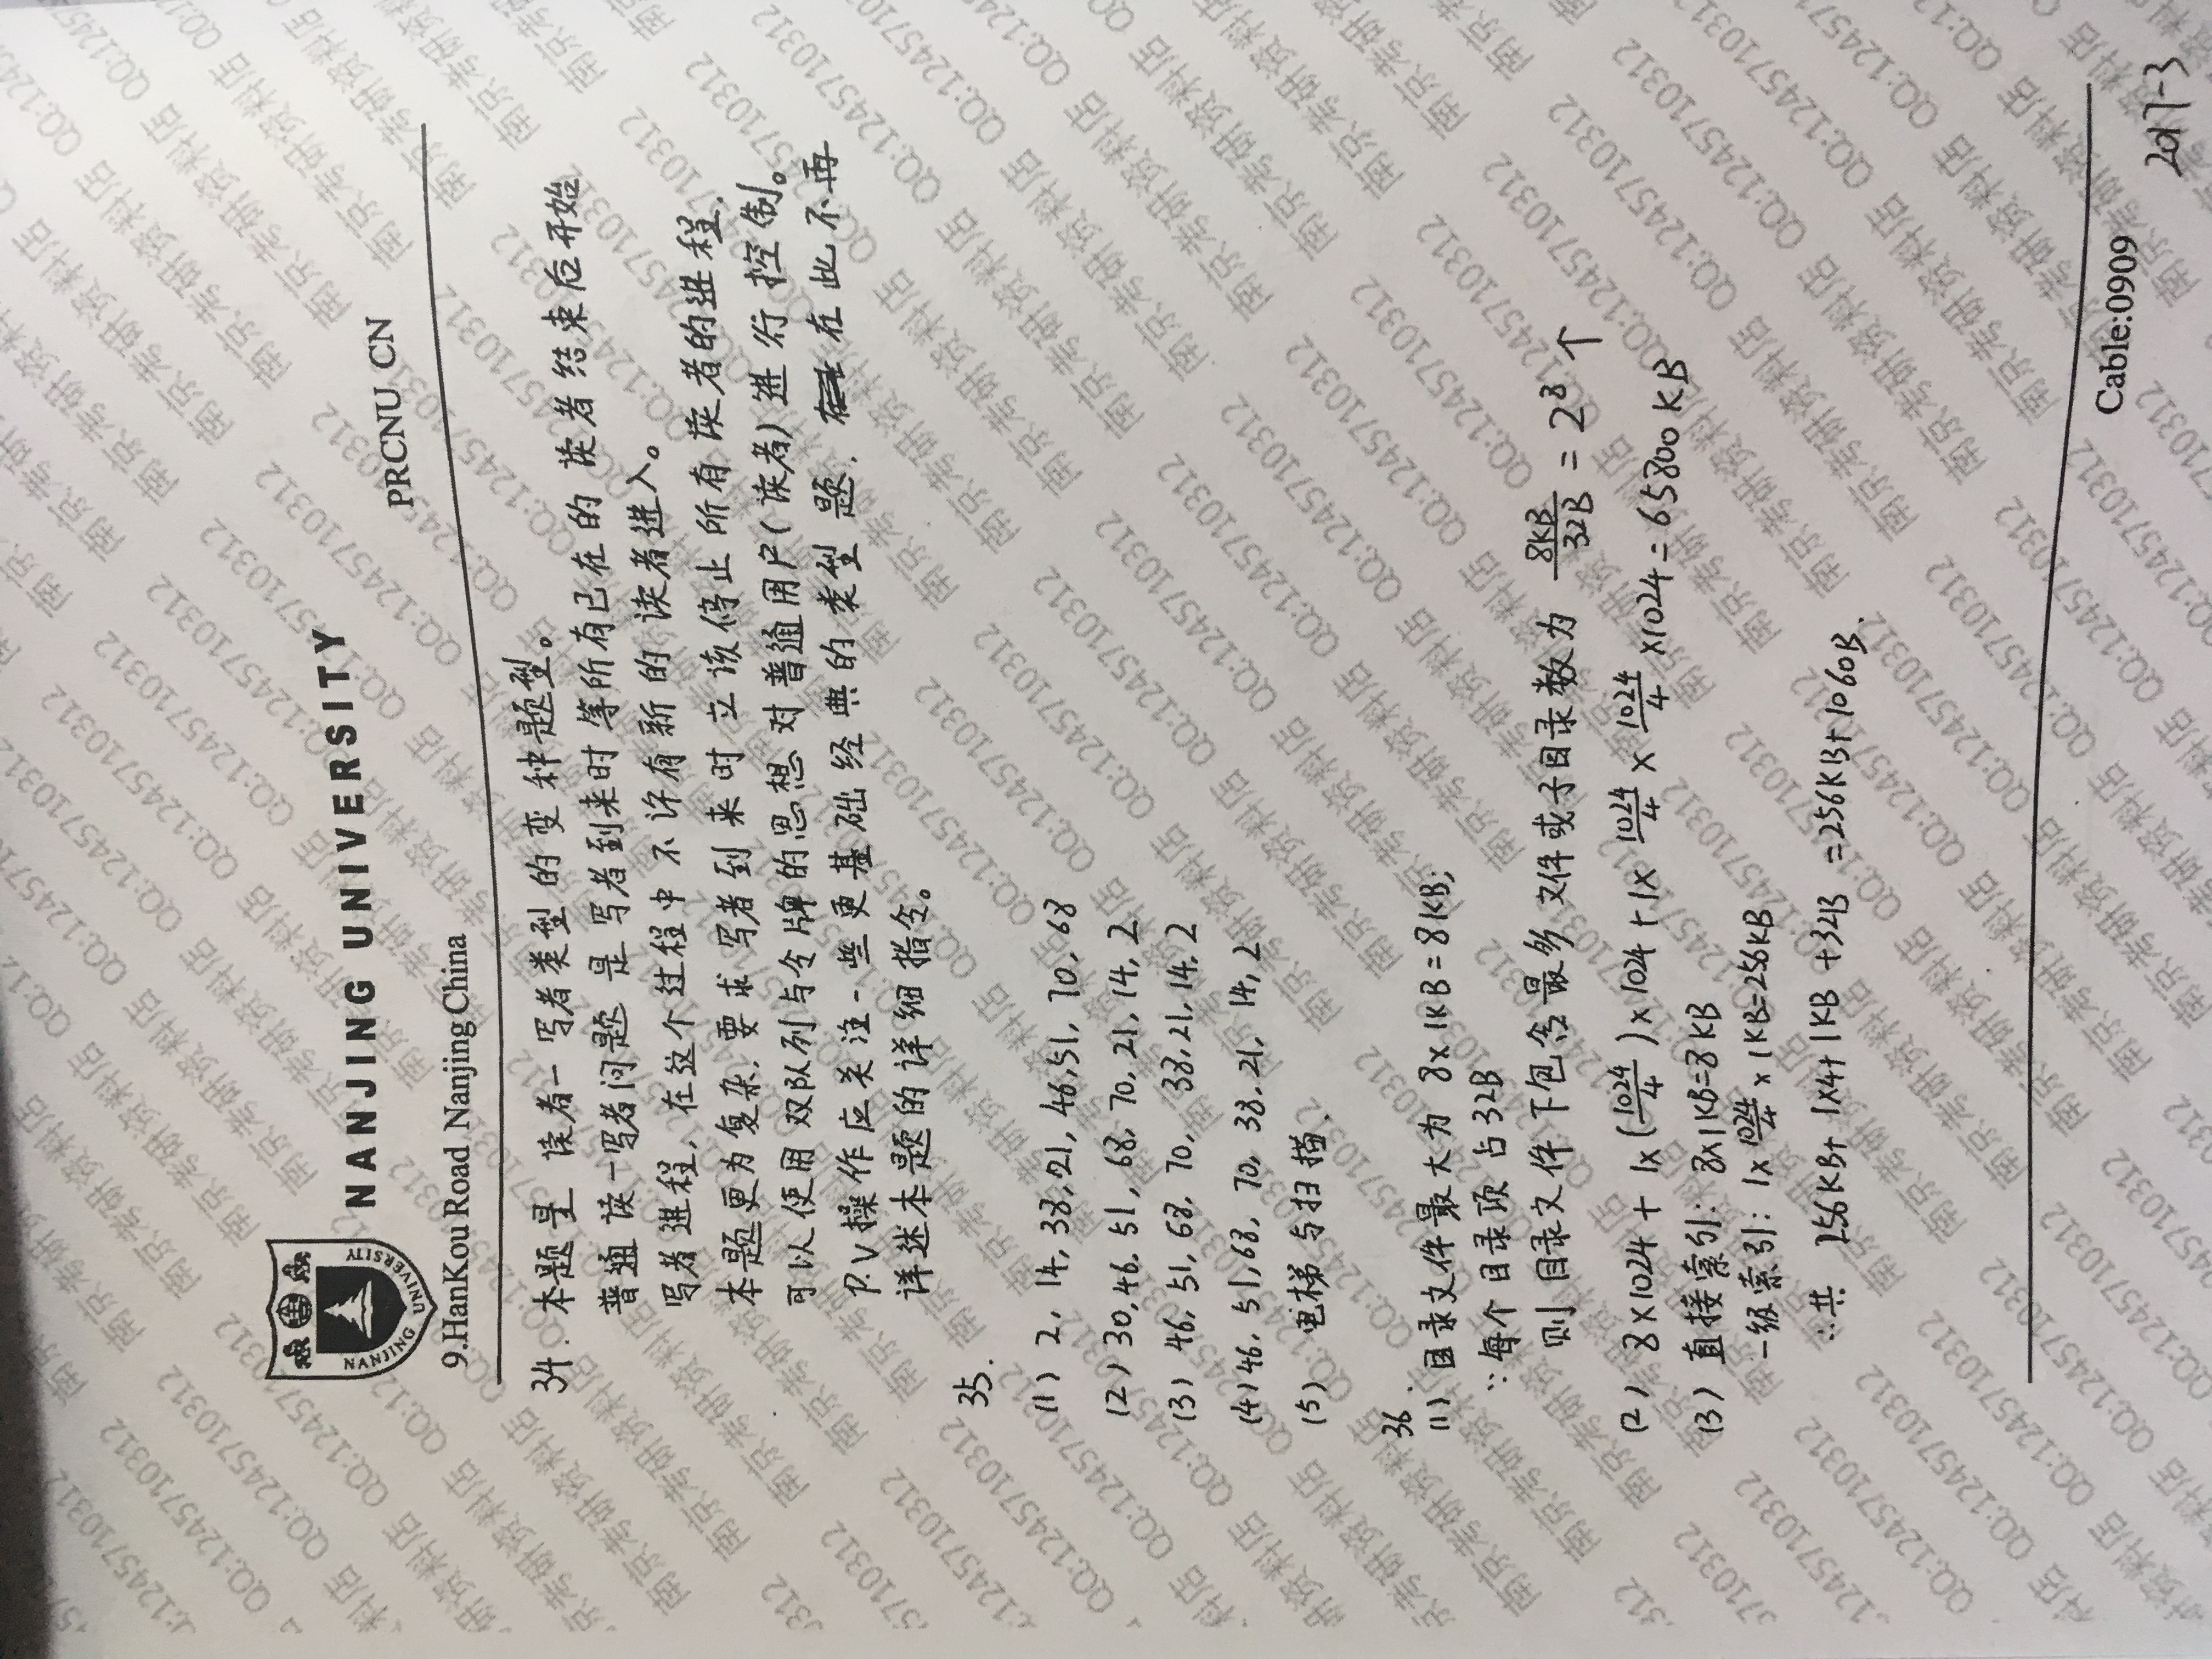 NANJING UNIVERSITY
NANJING UNIVERSITY
9.HanKou Road Nanjing China PRCNU CN
34. 本题是 读者-写者类型的变种题型。
普通读-写者问题是写者到来时等所有已在的读者结束后开始
写者进程,在这个过程中不许有新的读者进入。
本题更为复杂,要求写者到来时立该停止所有读者的进程,
可以使用双队列与令牌的思想对普通用户(读者)进行控制。
P.V操作应关注一些更基础经典的类型题, 在此不再
详述本题的详细指令。
35.
(1) 2, 14, 38, 21, 46, 51, 70, 68
(2) 30, 46, 51, 68, 70, 21, 14, 2
(3) 46, 51, 68, 70, 38, 21, 14, 2
(4) 46, 51, 68, 70, 38, 21, 14, 2
(5) 电梯与扫描.
36.
(1) 目录文件最大为 8×1KB=8KB;
∵每个目录项占32B
则目录文件下包含最多文件或子目录数为 8KB/32B = 2^8 个
(2) 8×1024 + 1×(1024/4)×1024 + 1×1024/4×1024/4×1024=65800KB
(3) 直接索引: 8×1KB=8KB
一级索引: 1×1024/4×1KB=256KB
∴共 256KB+1×4+1KB+32B =256KB+1060B.
Cable:0909
2017-3
南京考研资料店 QQ:1245710312